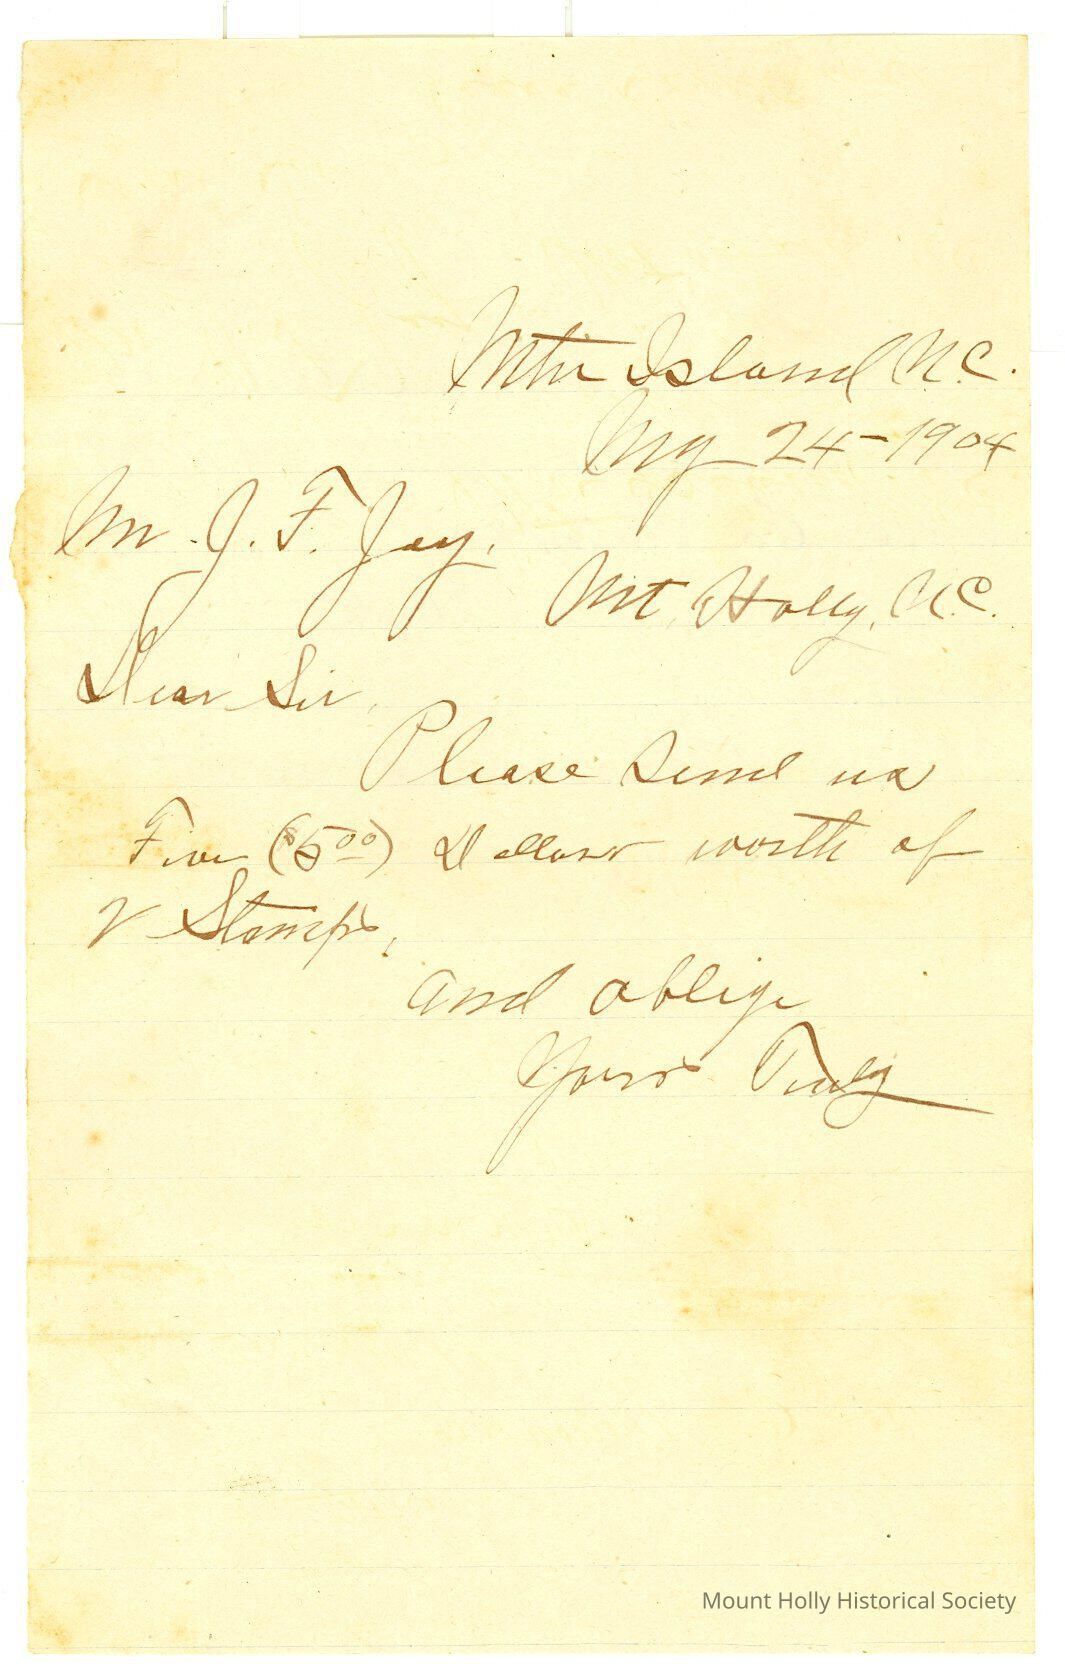 Mtn Island N.C.
My 24-1904
Mr. J. F. Jay,
Mt. Holly, N.C.
Dear Sir,
Please send us
Five ($5.00) Dollars worth of
2 Stamps,
and oblige
Yours Truly
Mount Holly Historical Society